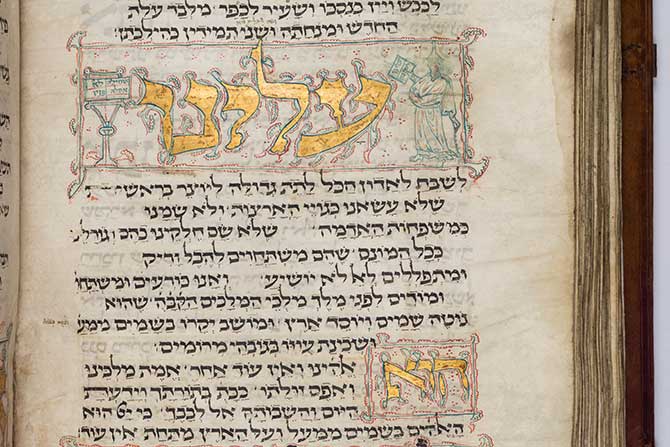 לכבש ויין כנסכו ושעיר לכפר מלבד עלת
החדש ומנחתה ושני תמידין כהילכתן
עלינו
לשבח לאדון הכל לתת גדולה ליוצר בראשית
שלא עשאנו כגויי הארצות ולא שמנו
כמשפחות האדמה שלא שם חלקינו כהם וגורלנו
ככל המונם שהם משתחוים להבל וריק
ומתפללים לא לא יושיע ואנו כורעים ומשתחוי
ומודים לפני מלך מלכי המלכים הקבה שהוא
נוטה שמים ויוסד ארץ ומושב יקרו בשמים ממעל
ושכינת עוזו בגובהי מרומים
הוא
אלהינו ואין עוד אחר אמת מלכינו
ואפס זולתו ככת בתורתך וידעת
היום והשבות אל לבבך כי יי הוא
האלהים בשמים ממעל ועל הארץ מתחת אין עוד